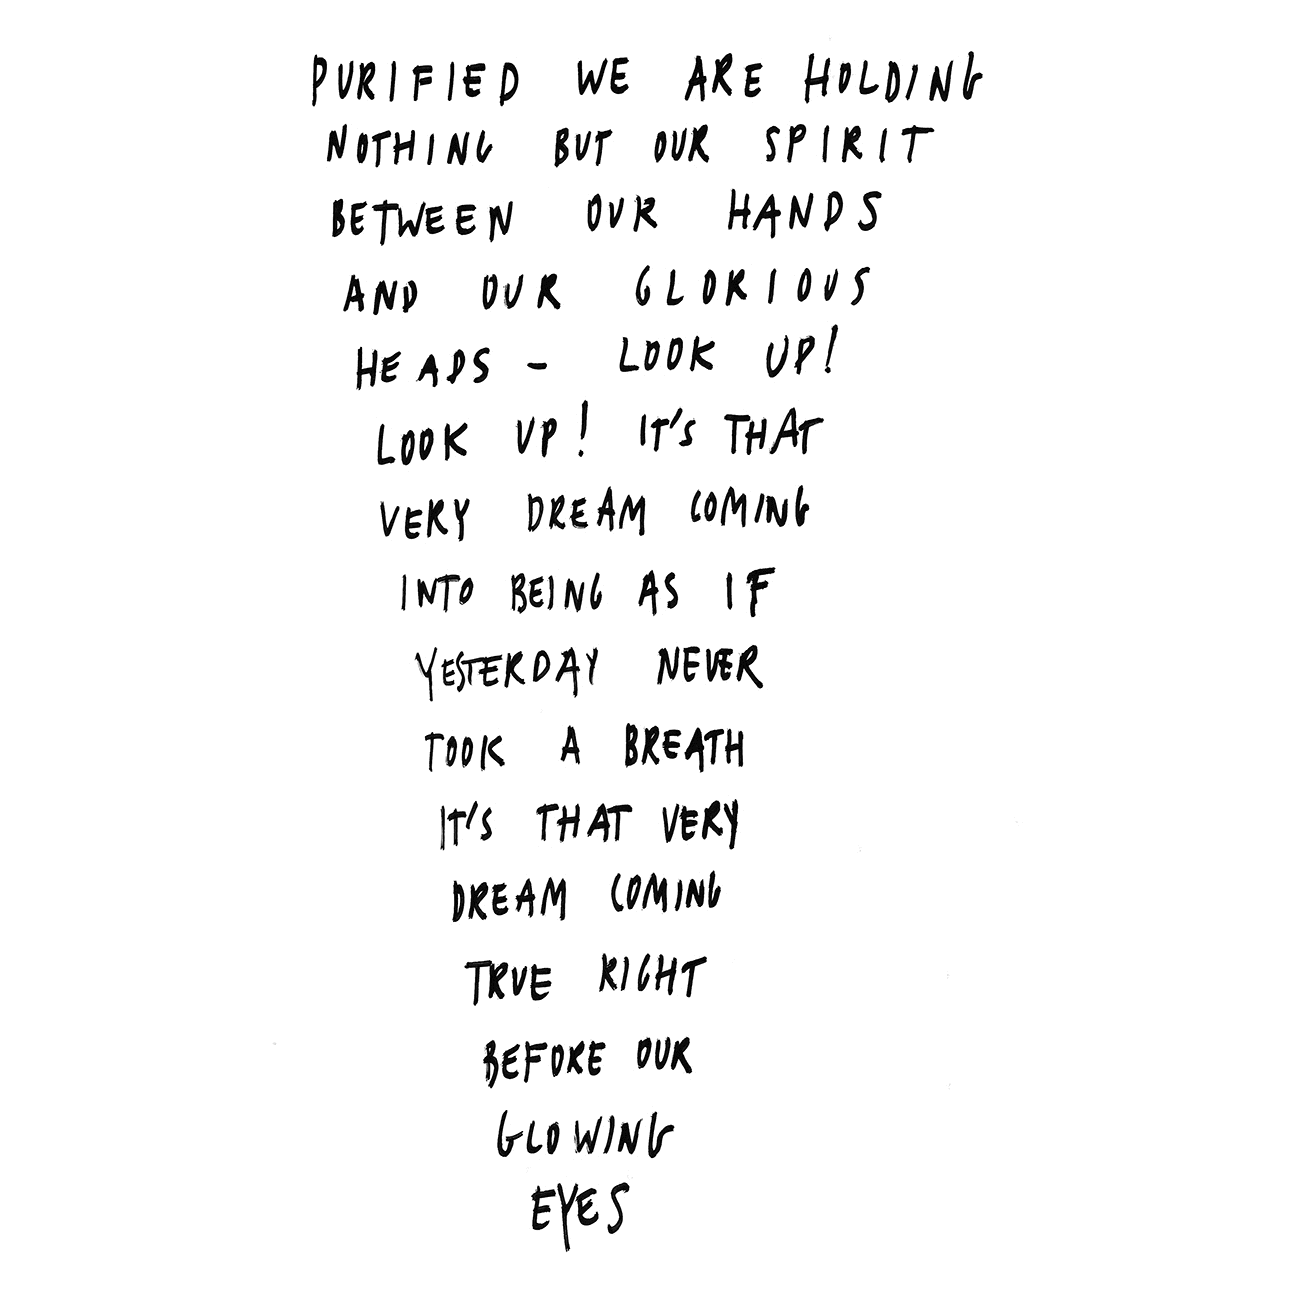 PURIFIED WE ARE HOLDING
NOTHING BUT OUR SPIRIT
BETWEEN OUR HANDS
AND OUR GLORIOUS
HEADS - LOOK UP!
LOOK UP! IT'S THAT
VERY DREAM COMING
INTO BEING AS IF
YESTERDAY NEVER
TOOK A BREATH
IT'S THAT VERY
DREAM COMING
TRUE RIGHT
BEFORE OUR
GLOWING
EYES